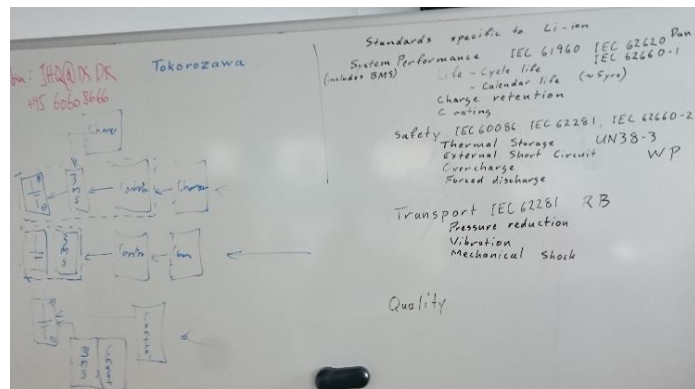 JHQ@DS.DK
+45 6060 8666
Tokorozawa
Charger
BMS
Control
Charger
BMS
Contro
BMS
Standards specific to Li-ion
System Performance IEC 61960 IEC 62620 Dan
(includes BMS) IEC 62660-1
Life - Cycle life
- Calendar life (~5yrs)
Charge retention
C rating
Safety IEC60086 IEC 62281, IEC 62660-2
Thermal Storage UN38-3
External Short Circuit WP
Overcharge
Forced discharge
Transport IEC 62281 RB
Pressure reduction
Vibration
Mechanical Shock
Quality